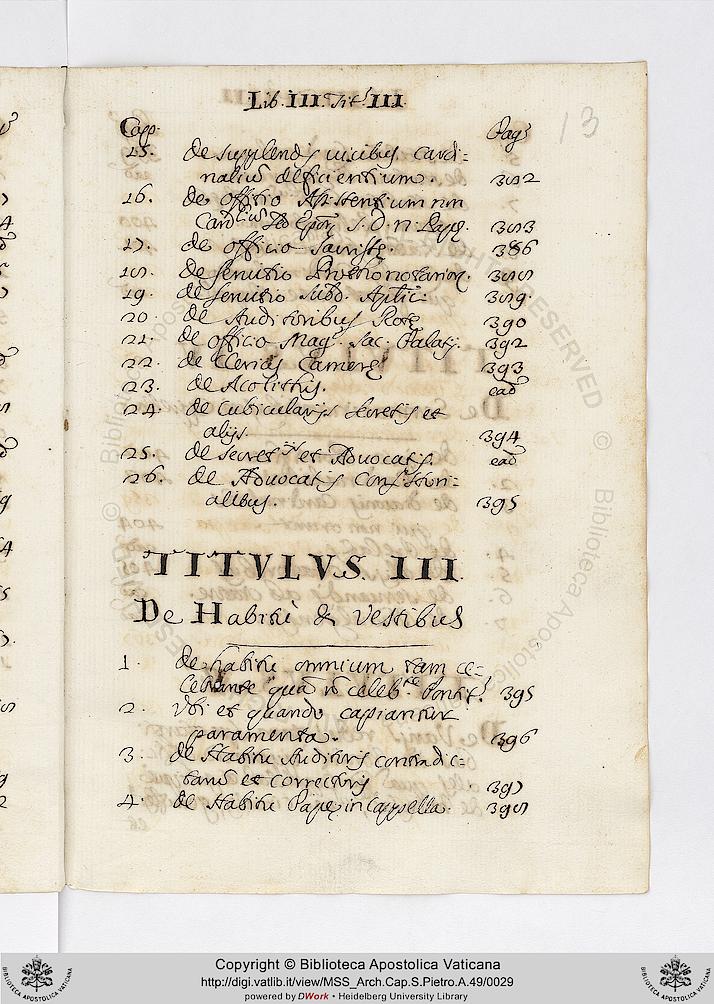 Lib. III. Tit. III.
13
Capp. Pag.
15. de supplendis vicibus Cardi=
nalium deficientium. 382
16. de offitio Assistentium non
Card. S. D. n. Papę. 383
17. de officio Sacristę. 386
18. de servitio Prothonotariorum. 388
19. de servitio Subd. Aplic. 389
20. de Auditoribus Rotę 390
21. de officio Mag. Sac. Palatij. 392
22. de Clericis Camerę 393
23. de Acolithis. ead
24. de Cubicularijs secretis et
alijs. 394
25. de secret. et Advocatis. ead
26. de Advocatis Consistori=
alibus. 395
TITVLVS. III
De Habitu & Vestibus
1. de habitu omnium tam ce=
lebrante quã celeb. Pontif. 395
2. Vbi et quando capiantur
paramenta. 396
3. de Habitu Auditoris contradic=
tarũ et Correctoris 397
4. de Habitu Papę in Cappella. 398
Copyright © Biblioteca Apostolica Vaticana
http://digi.vatlib.it/view/MSS_Arch.Cap.S.Pietro.A.49/0029
powered by DWork • Heidelberg University Library